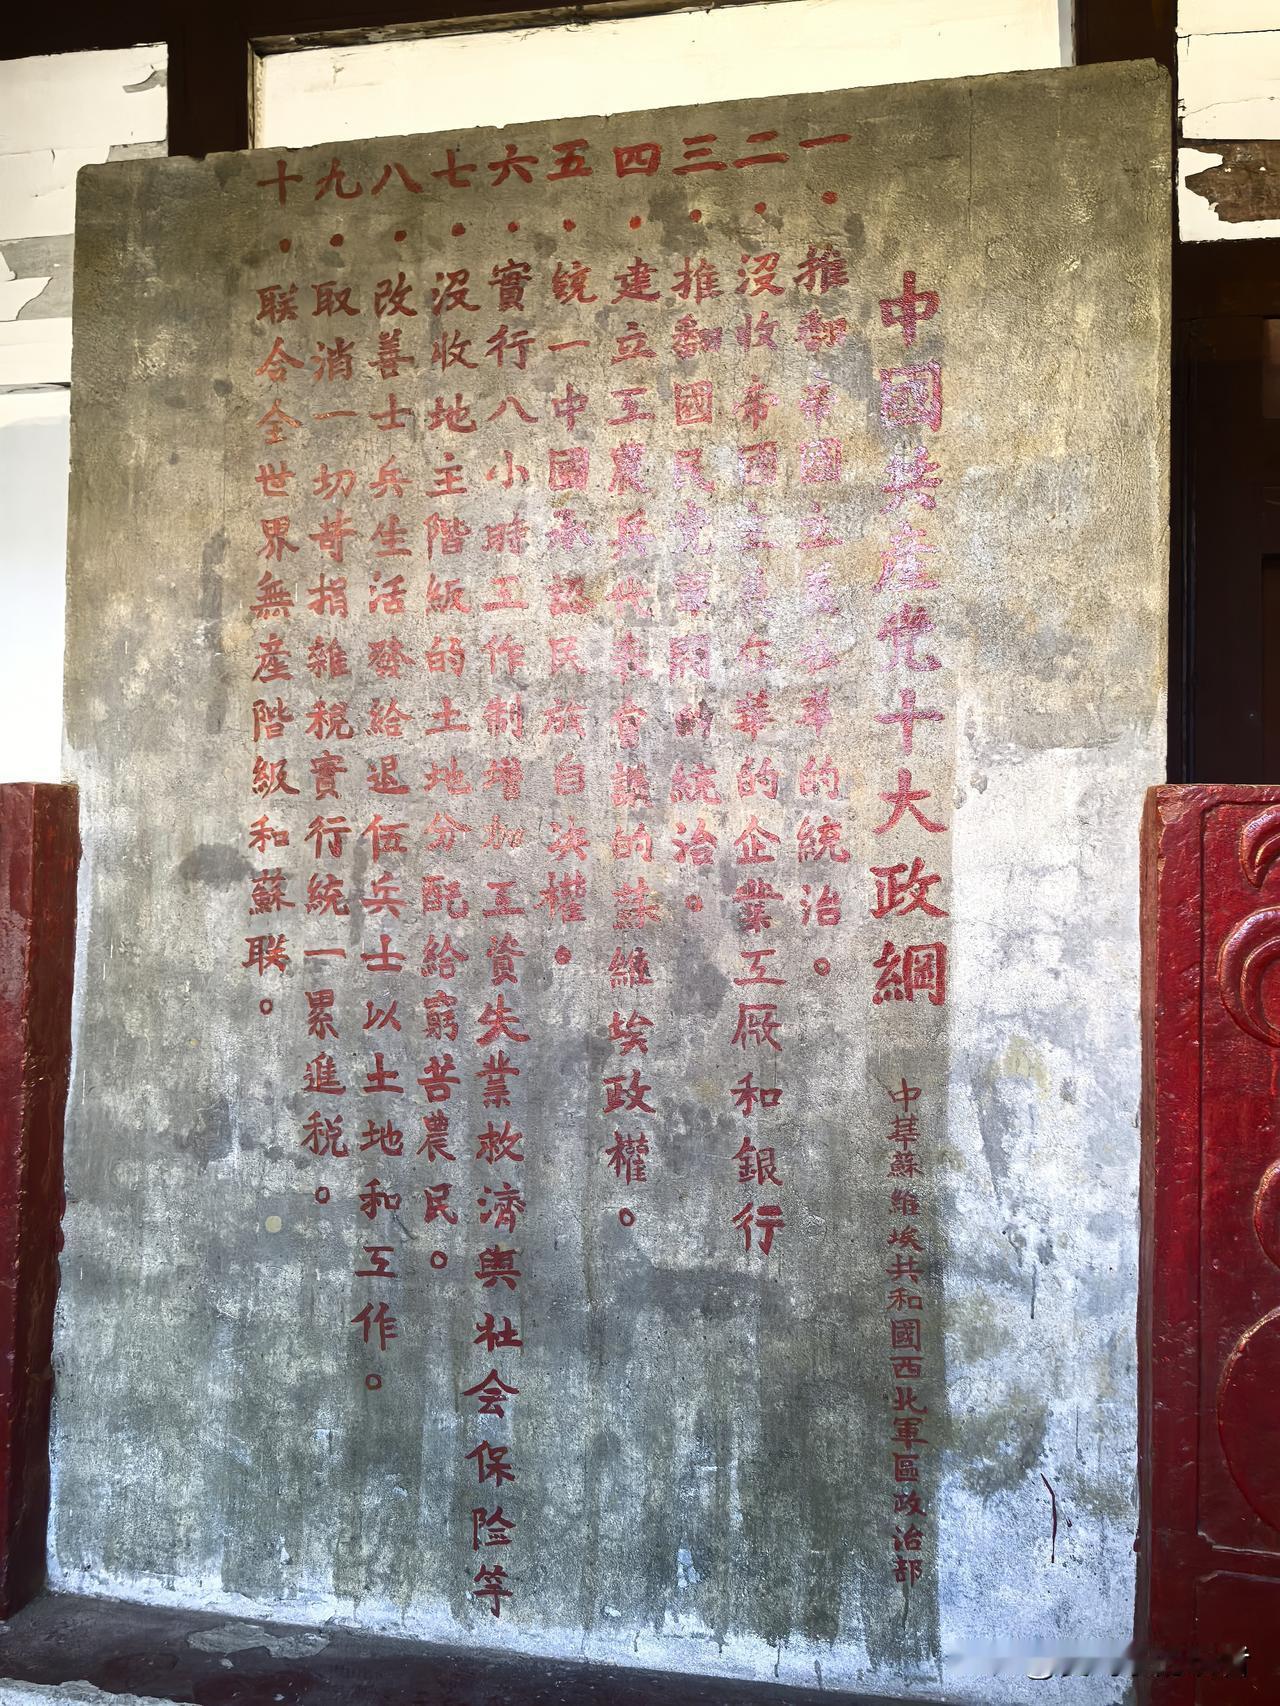 中國共產党十大政綱 中華蘇維埃共和國西北軍區政治部
一．推翻帝國主義在華的統治。
二．没收帝國主義在華的企業工厰和銀行
三．推翻國民党軍閥的統治。
四．建立工農兵代表會議的蘇維埃政權。
五．统一中國承認民族自决權。
六．實行八小時工作制增加工資失業救濟與社会保险等
七．没收地主階級的土地分配給窮苦農民。
八．改善士兵生活發給退伍兵士以土地和工作。
九．取消一切苛捐雜税實行統一累進税。
十．联合全世界無產階級和蘇联。